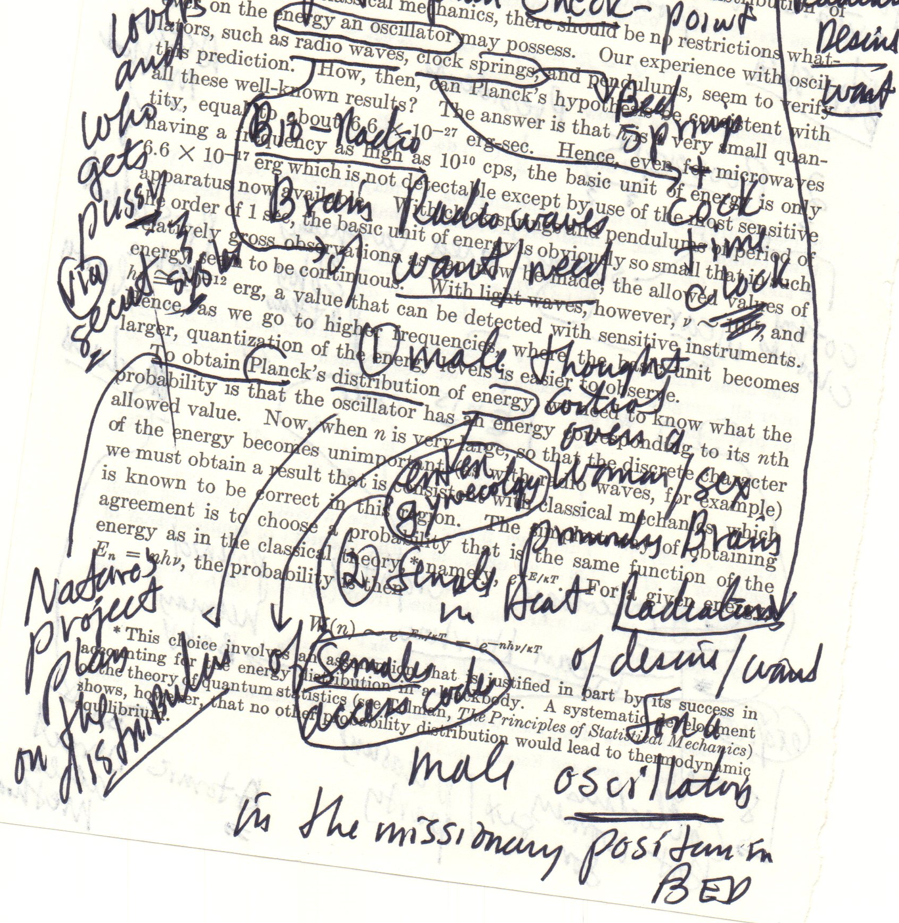 classical mechanics, there should be no restrictions what-
on the energy an oscillator may possess. Our experience with oscil-
lators, such as radio waves, clock springs, and pendulums, seem to verify
this prediction. How, then, can Planck's hypothesis be consistent with
all these well-known results? The answer is that h is a very small quan-
tity, equal to about 6.6 × 10⁻²⁷ erg-sec. Hence, even for microwaves
having a frequency as high as 10¹⁰ cps, the basic unit of energy is only
6.6 × 10⁻¹⁷ erg which is not detectable except by use of the most sensitive
apparatus now available. With pendulums of period of
the order of 1 sec, the basic unit of energy is obviously so small that in such
relatively gross observations made, the allowed values of
energy seem to be continuous. With light waves, however, ν ~ and
erg, a value that can be detected with sensitive instruments.
Hence, as we go to higher frequencies, where the basic unit becomes
larger, quantization of the energy levels is easier to observe.
To obtain Planck's distribution of energy, we need to know what the
probability is that the oscillator has an energy corresponding to its nth
allowed value. Now, when n is very large, so that the discrete character
of the energy becomes unimportant (as with radio waves, for example)
we must obtain a result that is consistent with classical mechanics, which
is known to be correct in this region. The way of obtaining
agreement is to choose a probability that is the same function of the
energy as in the classical theory,* namely, e^-E/κT. For a given energy
Eₙ = nhν, the probability is then
W(n) ~ e^-Eₙ/κT = e^-nhν/κT
* This choice involves an assumption that is justified in part by its success in
accounting for the energy distribution in a blackbody. A systematic development
of the theory of quantum statistics (see Tolman, The Principles of Statistical Mechanics)
shows, however, that no other probability distribution would lead to thermodynamic
equilibrium.
Check-point
and
who
gets
pussy
via
secret system
Desire
want
Bio-Radio
Brain Radio waves
of want/need
Bed
spring
+
cock
time
clock
① male thought
control
over a
woman/sex
enter
gynecology
Brain
② females
in heat Radiation
of desire/want
for a
Nature's
project
plan
on the
distribution
of females
access codes
male oscillator
in the missionary position in
BED